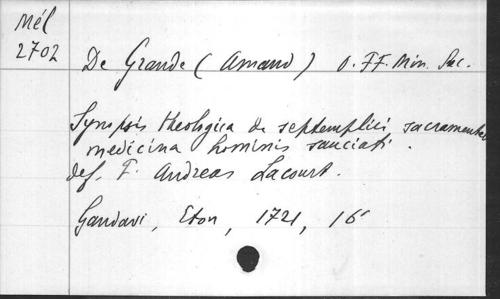 Mél
2702
De Grande (Amand) O. FF. Min. Sac.
Synopsis theologica de septemplici sacramentali
medicina hominis sauciati.
def. F. Andreas Lacourt.
Gandavi, Eton, 1721, 16°